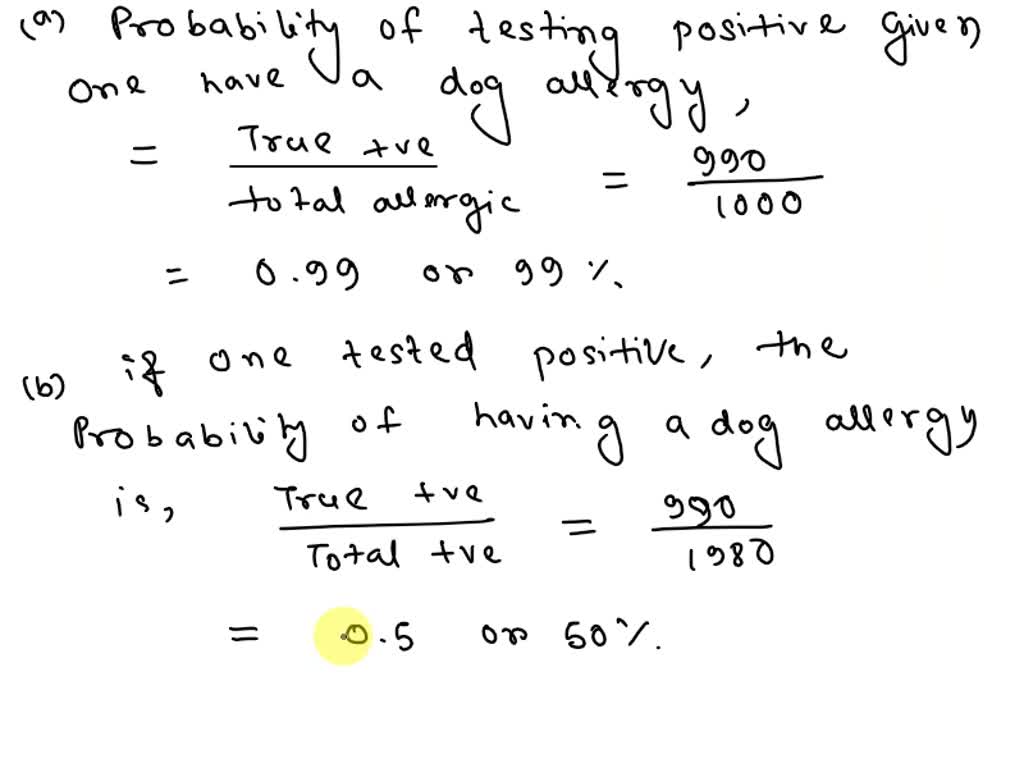 (a) Probability of testing positive given
one have a dog allergy,
= True +ve / total allergic = 990 / 1000
= 0.99 or 99 %.
(b) if one tested positive, the
Probability of having a dog allergy
is, True +ve / Total +ve = 990 / 1980
= 0.5 or 50%.